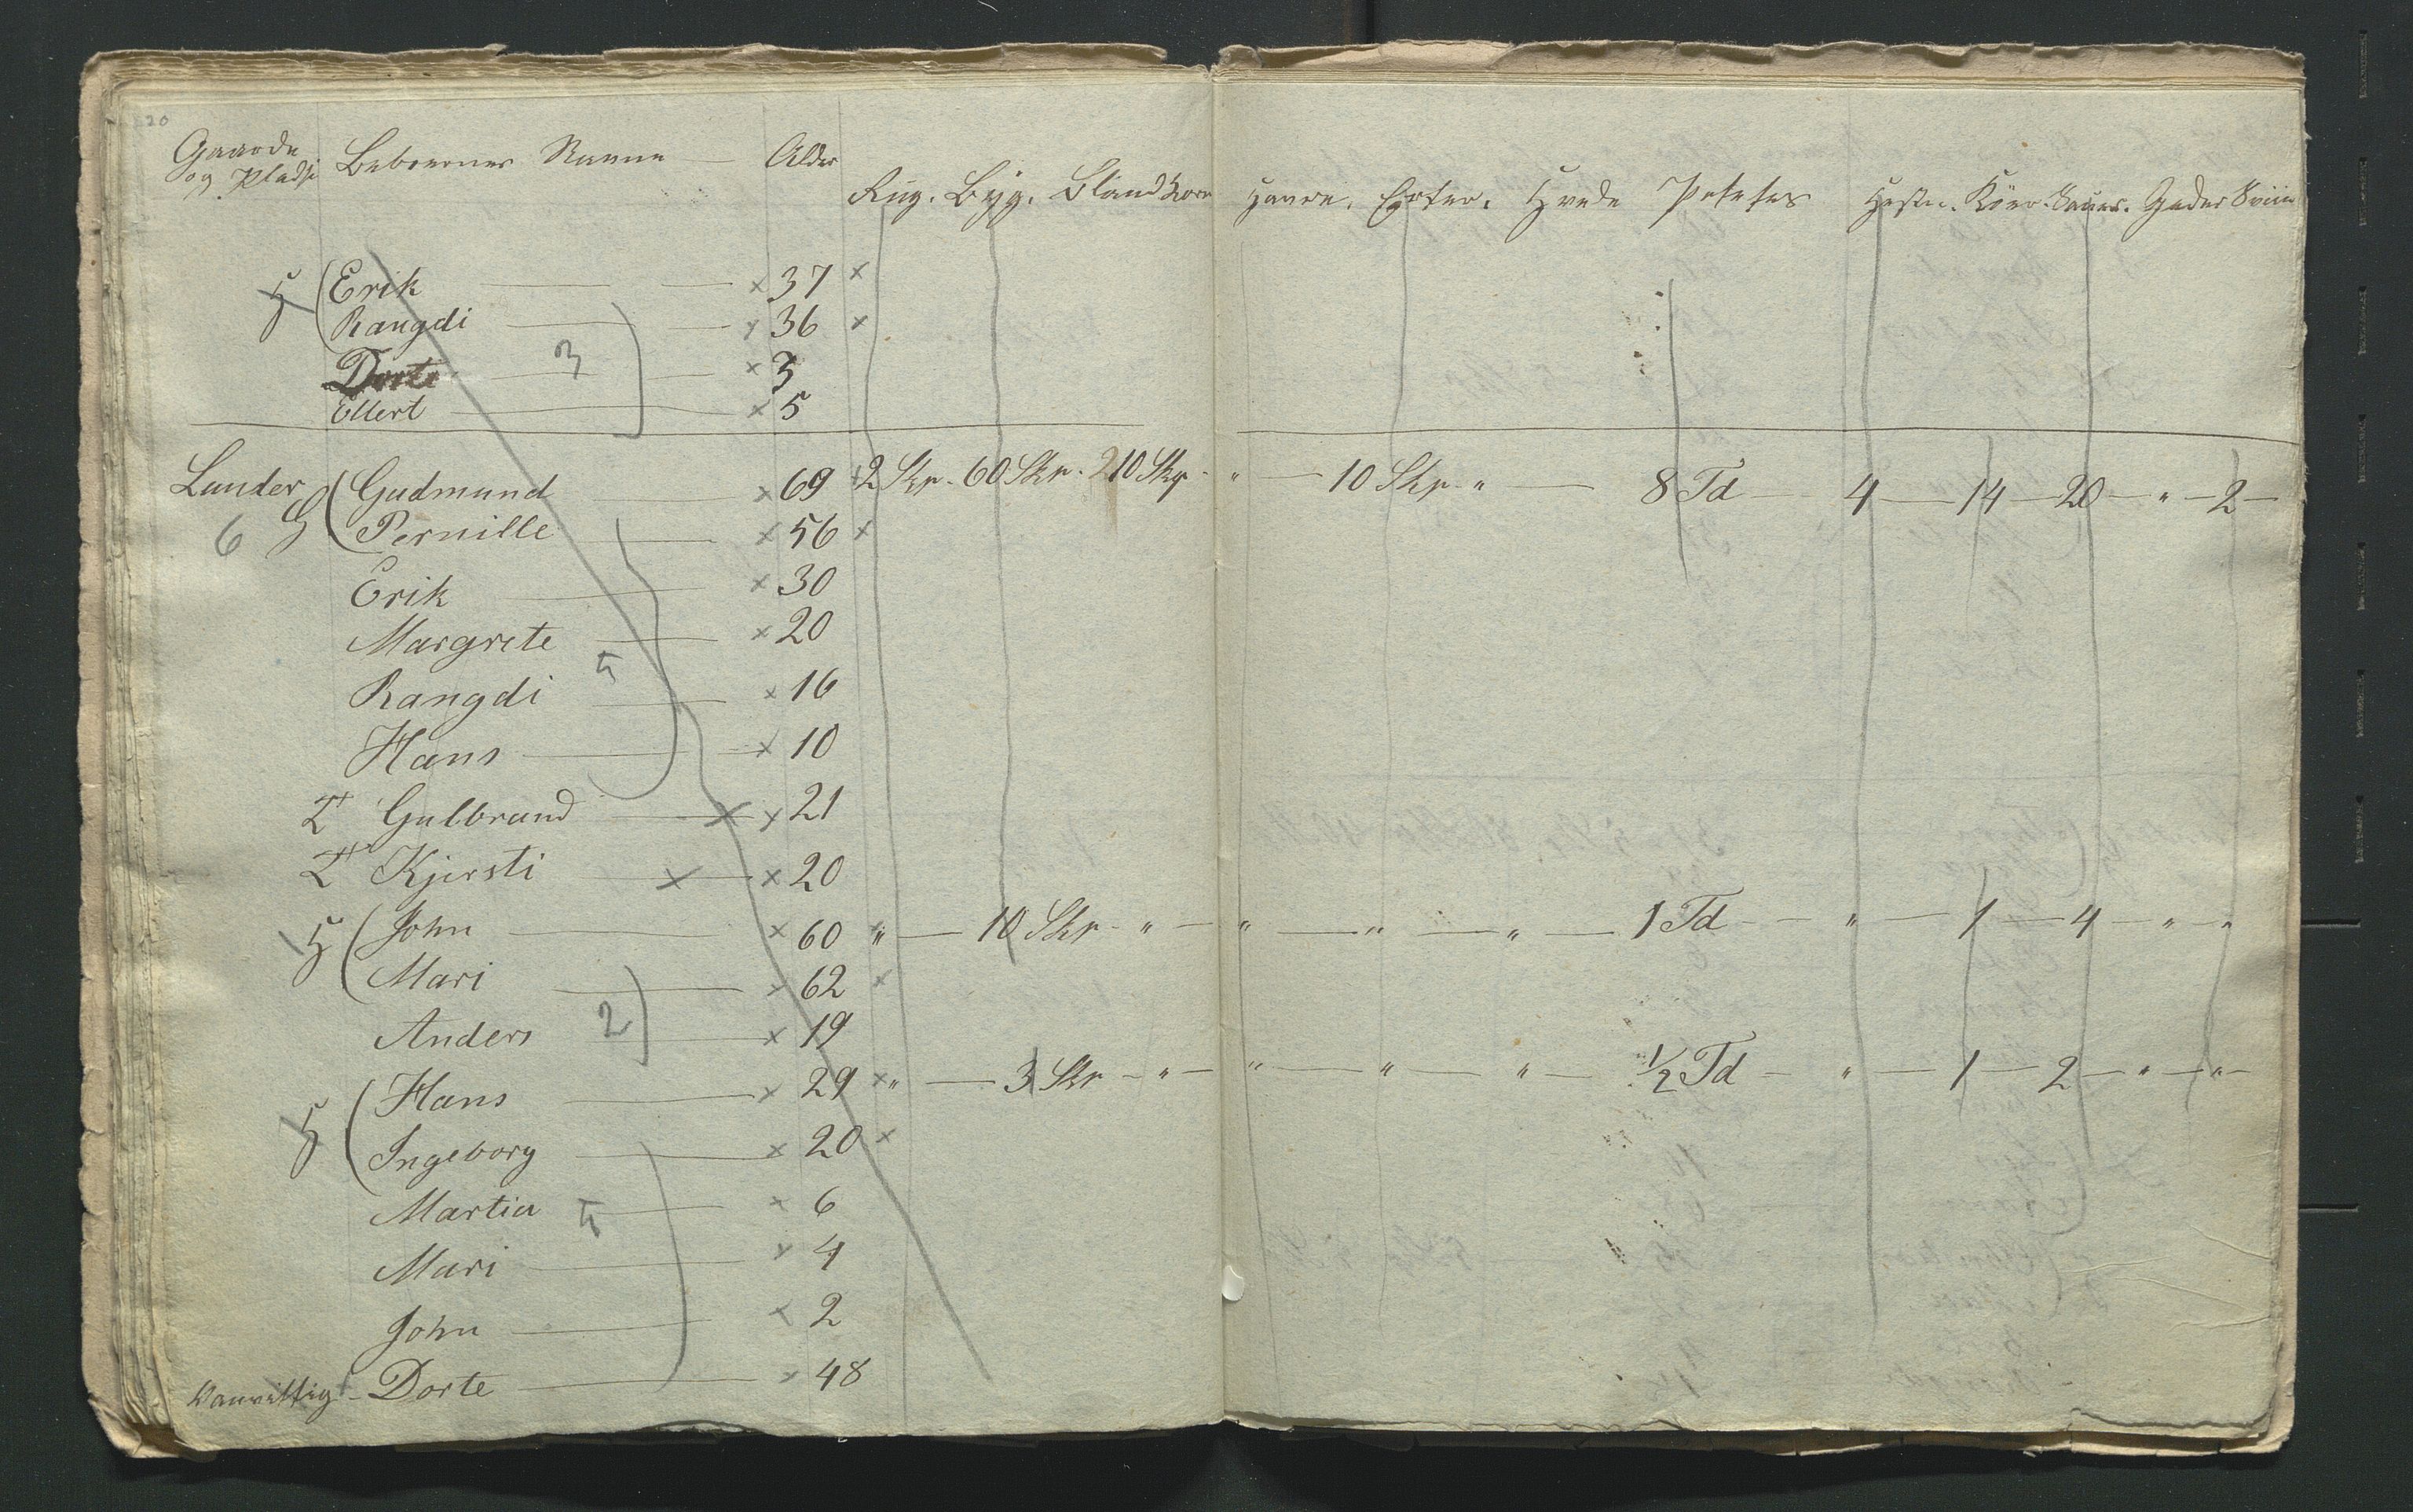 20
Gaarde og Pladse Beboernes Navne Alder Rug. Byg. Blandkorn Havre. Erter. Hvede Potetes Heste. Köer. Sauer. Geder Sviin
H Erik 37
Rangdi 36
Dorte 3
3
Ellert 5
Lunder G Gudmund 69 2 Skp. 60 Skp. 210 Skp. " 10 Skp. " 8 Td 4 14 20 " 2
6 Pernille 56
Erik 30
Margrete 20
5
Rangdi 16
Hans 10
T Gulbrand 21
T Kjersti 20
H John 60 " 10 Skp. " " " " 1 Td " 1 4 " "
Mari 62
Anders 2 19
H Hans 29 " 3 Skp " " " " 1/2 Td " 1 2 " "
Ingeborg 20
Martia 5 6
Mari 4
John 2
Vanvittig - Dorte 48